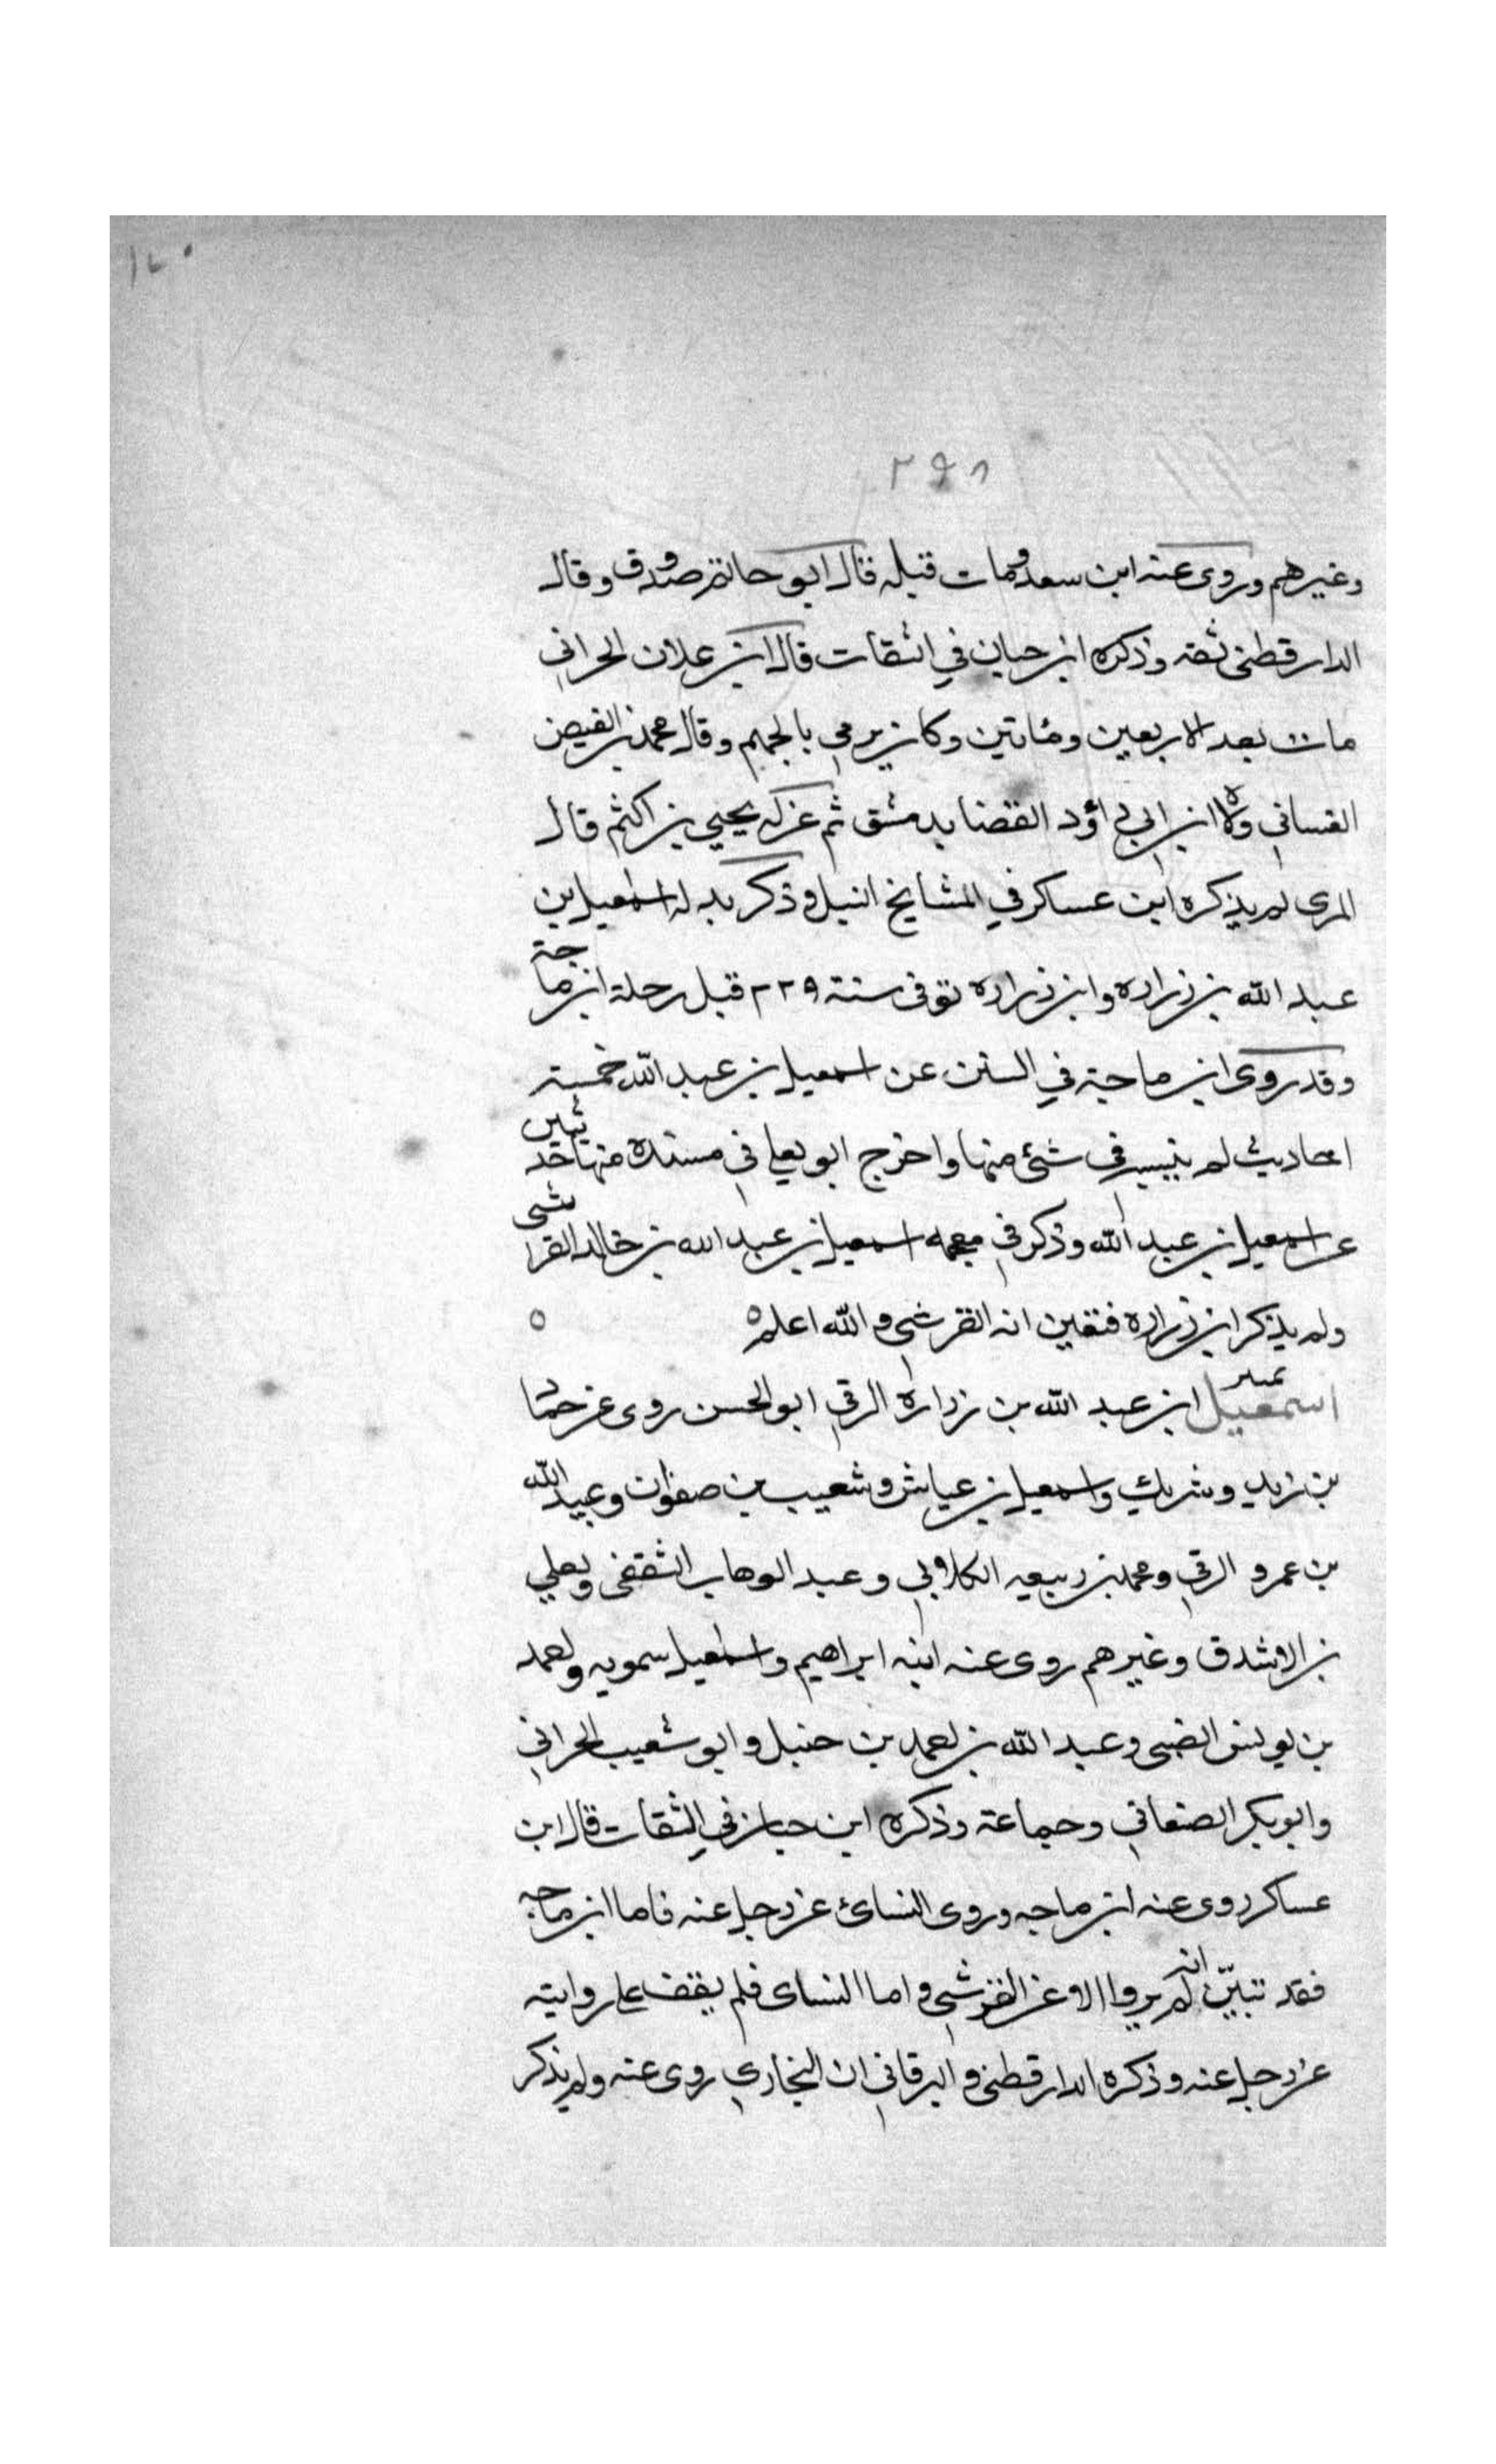 ١٢٠
٢٩٨
وغيرهم وروى عنه ابن سعد ومات قبله قال ابو حاتم صدوق وقال
الدارقطني ثقه وذكره ابن حبان في الثقات قال ابن علان الحراني
مات بعد الاربعين ومائتين وكان يرمى بالجهم وقال محمد بن الفيض
الغساني ولاه ابن ابي داؤد القضا بدمشق ثم عزله يحيي بن اكثم قال
المزى لم يذكره ابن عساكر في المشايخ النبل وذكر بدله اسمعيل بن
عبد الله بن زراره وابن زراره توفى سنة ٢٢٩ قبل رحلة ابن ماجة
وقد روى ابن ماجة في السنن عن اسمعيل بن عبد الله خمسة
احاديث لم ينسبه في شئ منها واخرج ابو يعلي في مسنده منها حديثين
عن اسمعيل بن عبد الله وذكر في معجمه اسمعيل بن عبد الله بن خالد القرشى
ولم يذكر ابن زراره فتعين انه القرشي والله اعلم ه ه
اسمعيل ابن عبد الله بن زرارة الرقي ابو الحسن روى عن حماد
بن زيد وشريك واسمعيل بن عياش وشعيب بن صفوان وعبيد الله
بن عمرو الرقي ومحمد بن ربيعه الكلابي وعبد الوهاب الثقفى ويعلي
بن الاشدق وغيرهم روى عنه ابنه ابراهيم واسمعيل سمويه واحمد
بن يونس الضبى وعبد الله بن احمد بن حنبل وابو شعيب الحراني
وابو بكر الصنعاني وجماعة وذكره ابن حبان في الثقات قال ابن
عساكر روى عنه ابن ماجه وروى النسائ عن رجل عنه فاما ابن ماجه
فقد تبيّن انه لم يروا الا عن القرشي واما النساى فلم يقف على روايته
عن رجل عنه وذكره الدارقطنى والبرقاني ان البخاري روى عنه ولم يذكر